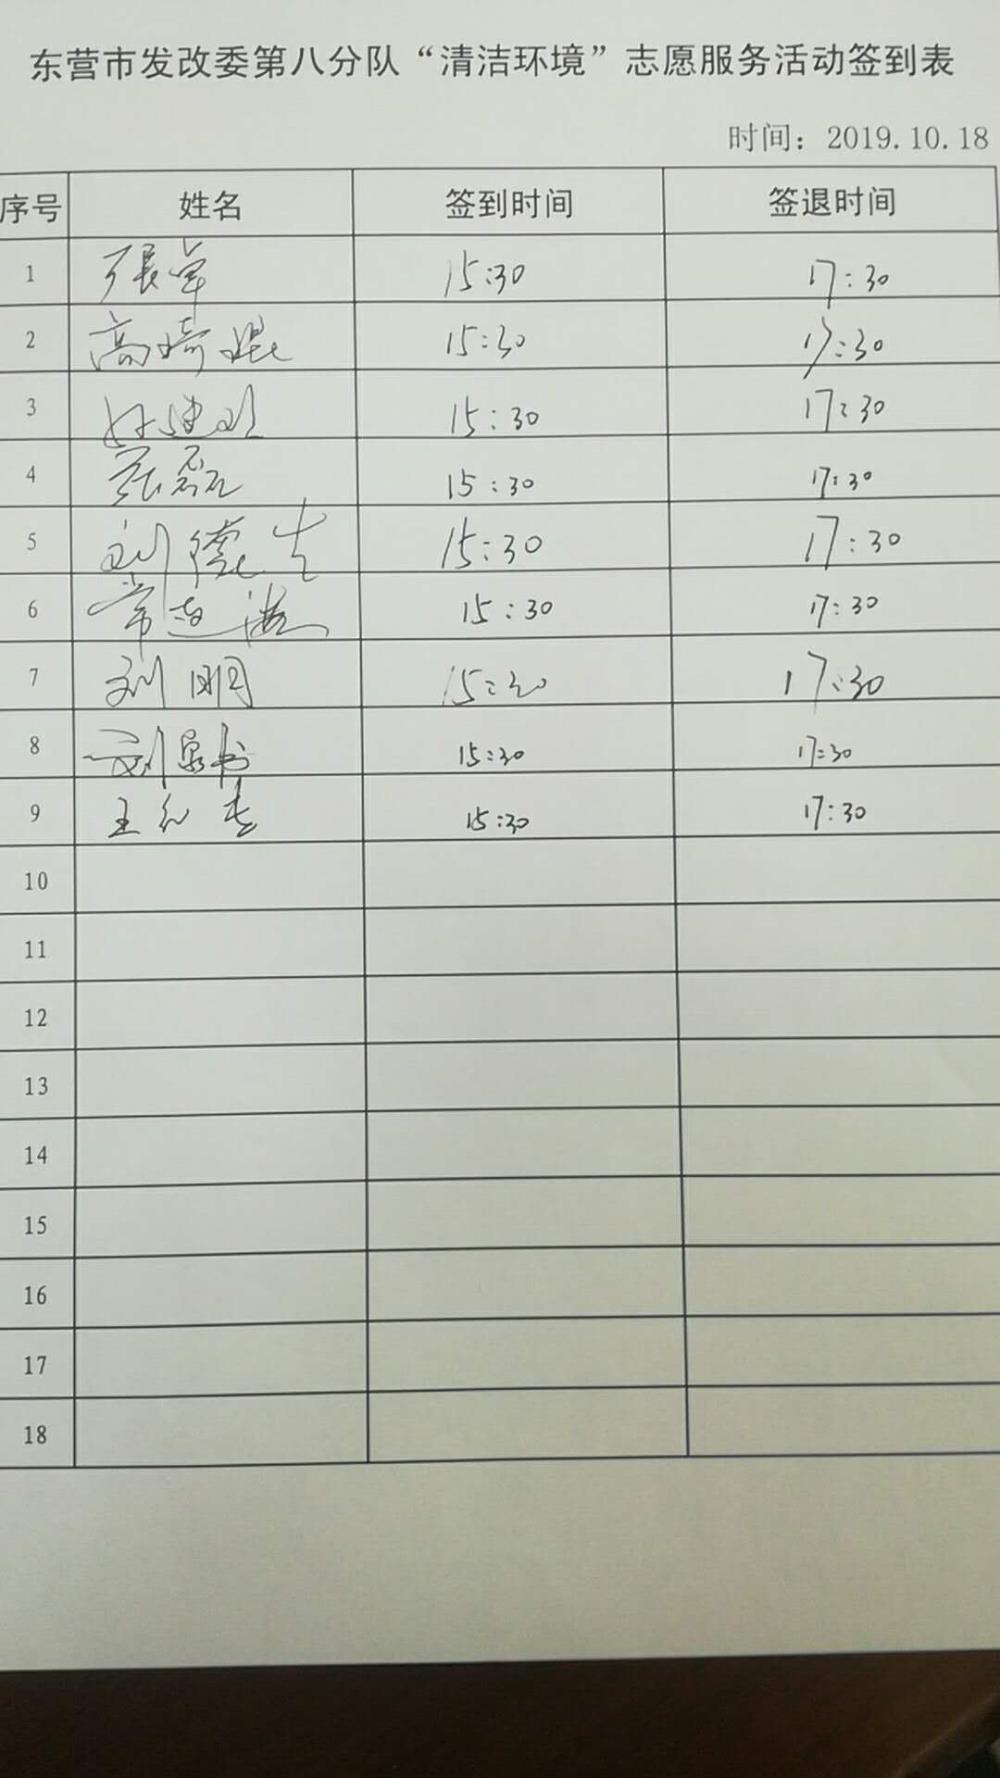 东营市发改委第八分队“清洁环境”志愿服务活动签到表
时间：2019.10.18
序号 姓名 签到时间 签退时间
1 張卓 15:30 17:30
2 高琦琨 15:30 17:30
3 15:30 17:30
4 张磊 15:30 17:30
5 刘德生 15:30 17:30
6 常连海 15:30 17:30
7 刘明 15:30 17:30
8 刘 书 15:30 17:30
9 王 15:30 17:30
10
11
12
13
14
15
16
17
18